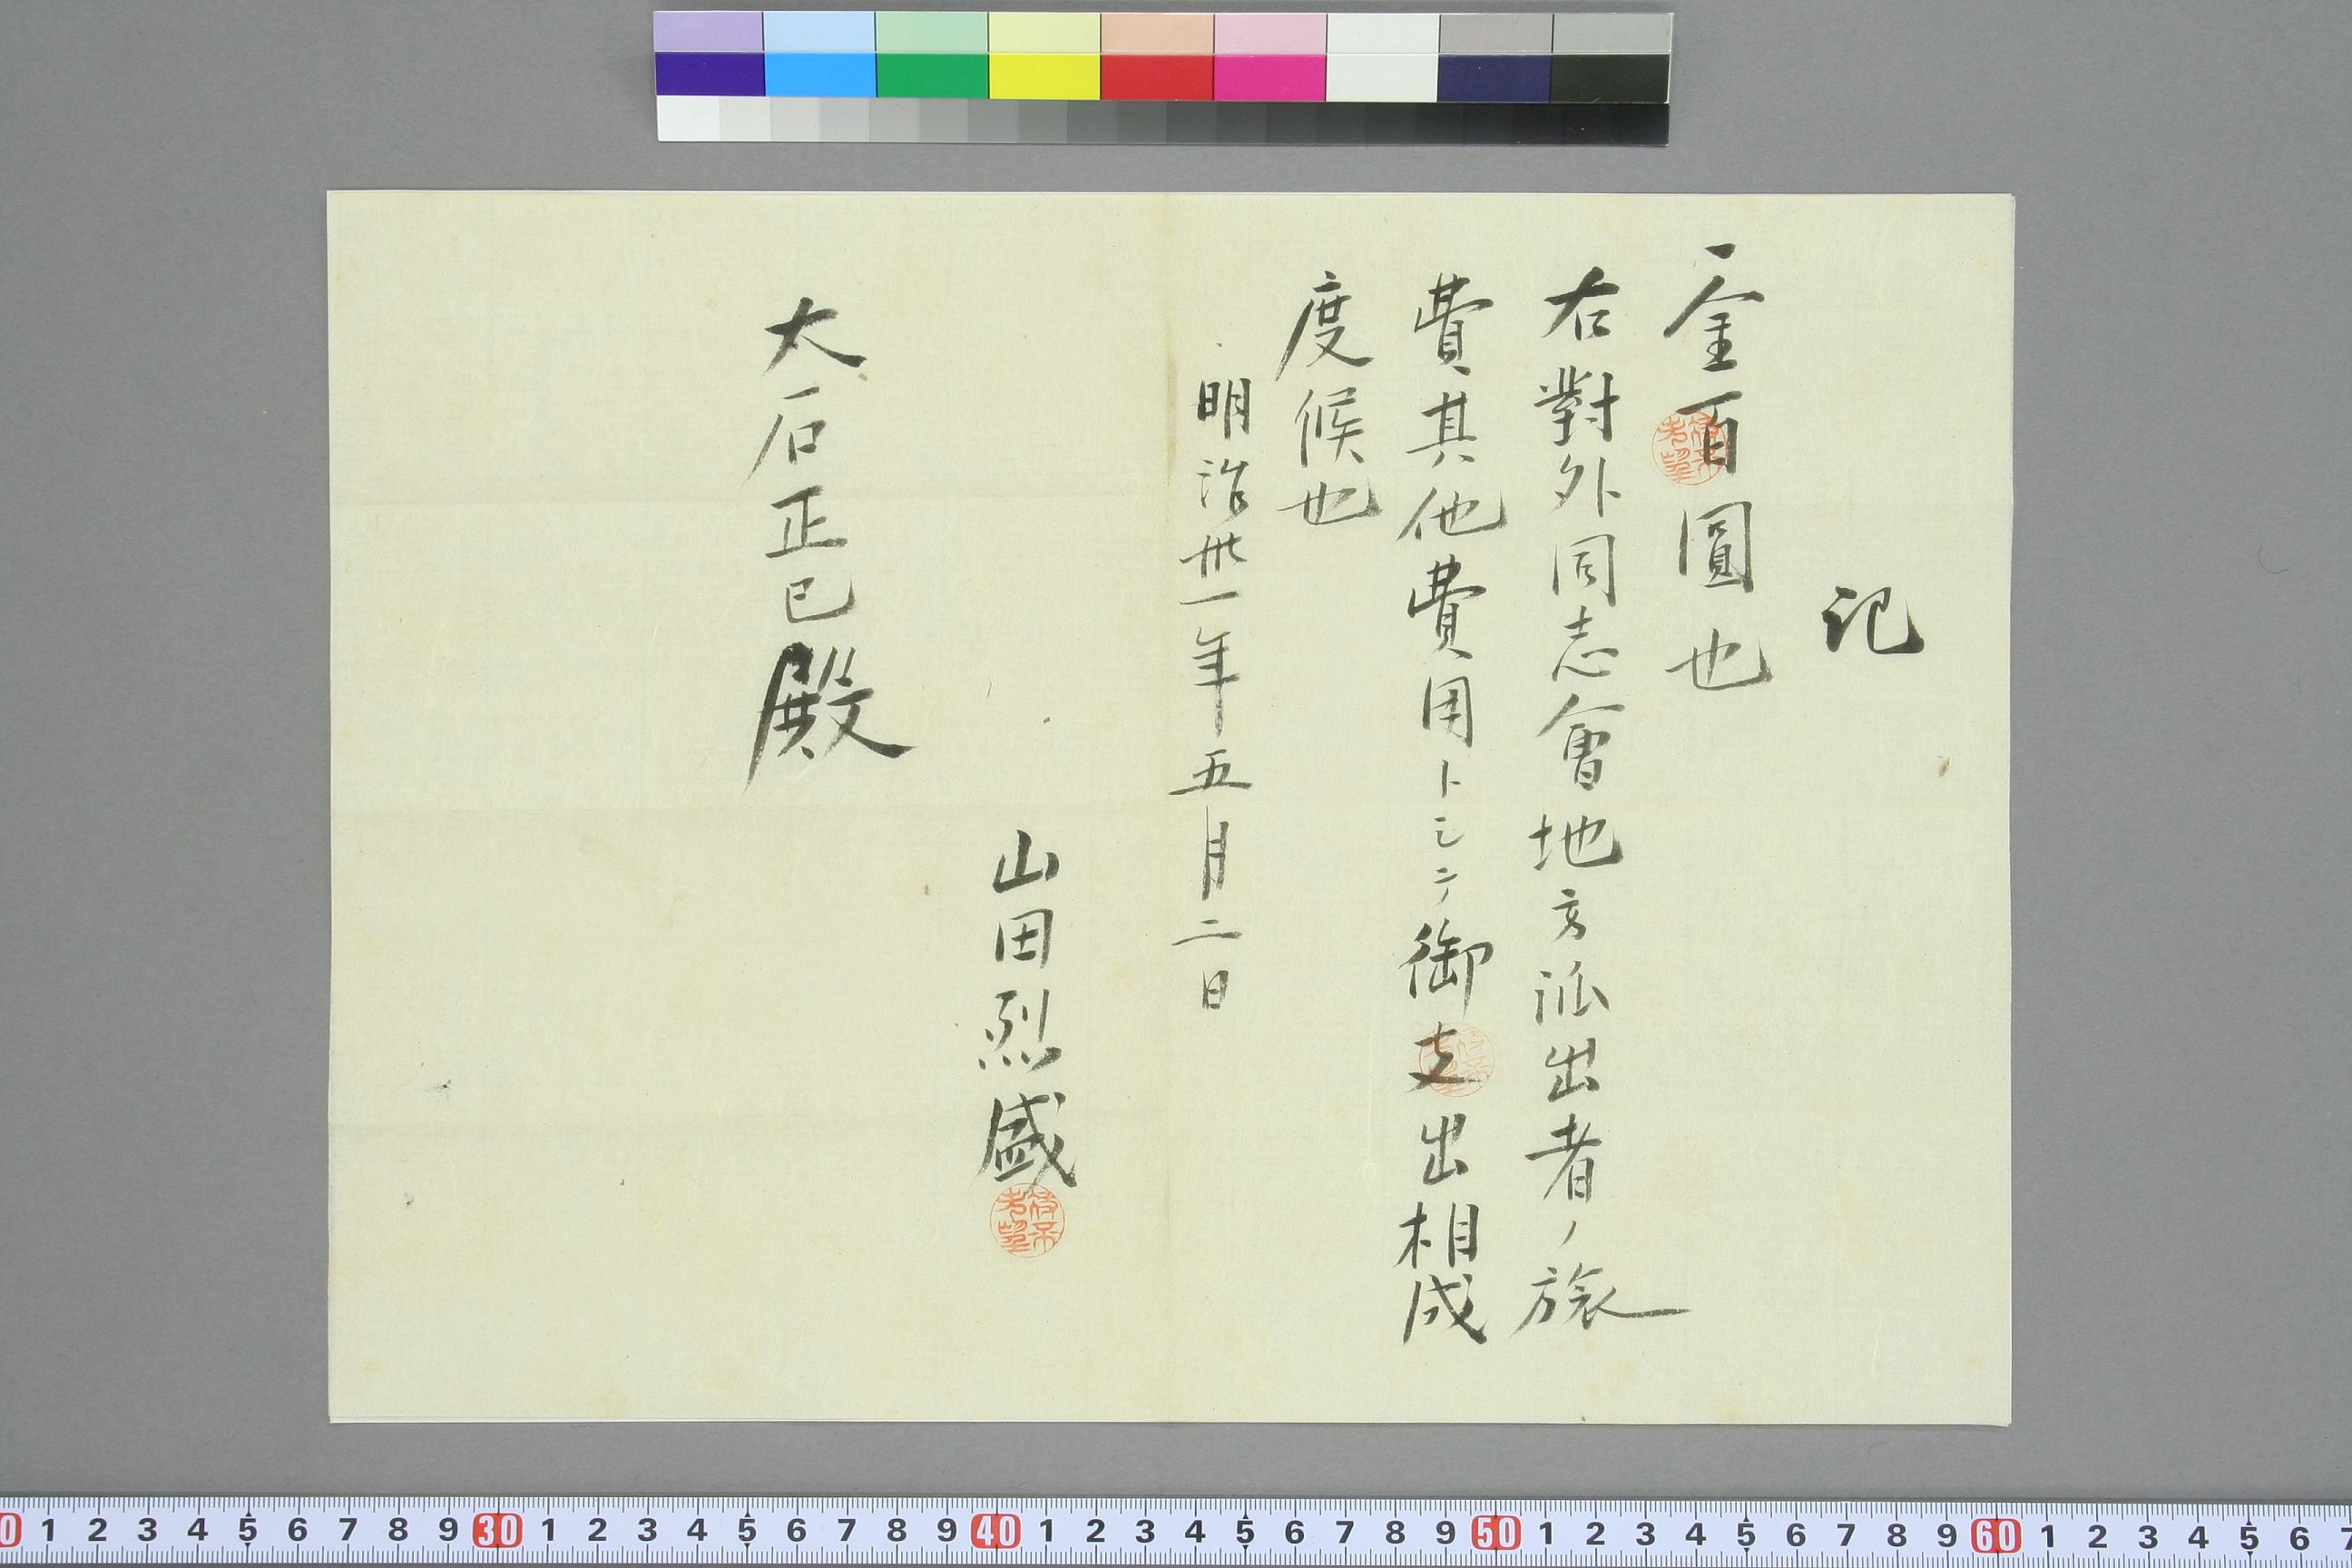 記
一金百圓也
右對外同志會地方派出者ノ旅
費其他費用トシテ御支出相成
度候也
明治卅一年五月二日
山田烈盛
大石正巳殿
0 1 2 3 4 5 6 7 8 9 30 1 2 3 4 5 6 7 8 9 40 1 2 3 4 5 6 7 8 9 50 1 2 3 4 5 6 7 8 9 60 1 2 3 4 5 6 7